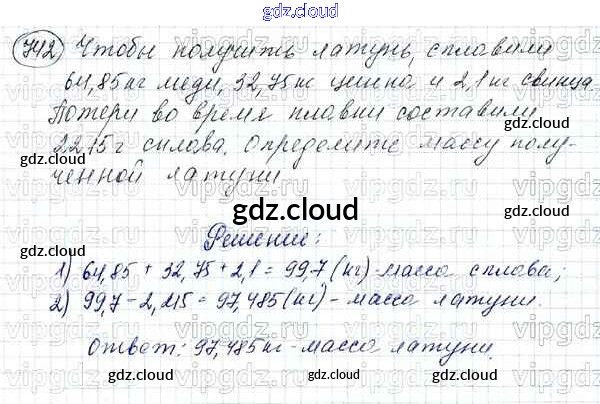 gdz.cloud
742 Чтобы получить латунь, сплавили
64,85 кг меди, 32,75 кг цинка и 2,1 кг свинца.
Потери во время плавки составили
2215 г сплава. Определите массу полу-
ченной латуни.
gdz.cloud
Решение:
1) 64,85 + 32,75 + 2,1 = 99,7 (кг) - масса сплава;
2) 99,7 - 2,215 = 97,485 (кг) - масса латуни.
Ответ: 97,485 кг - масса латуни.
gdz.cloud